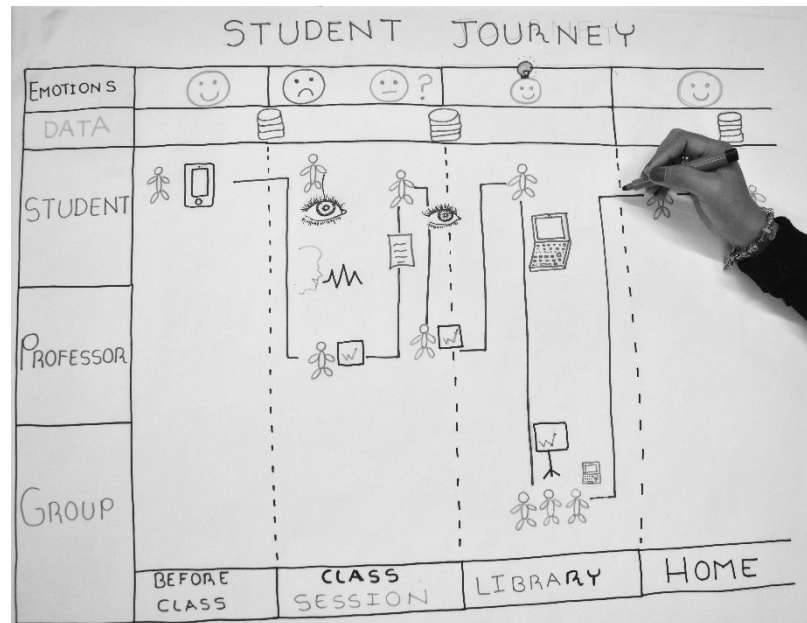 STUDENT JOURNEY
EMOTIONS
?
DATA
STUDENT
PROFESSOR
GROUP
BEFORE
CLASS
CLASS
SESSION
LIBRARY
HOME